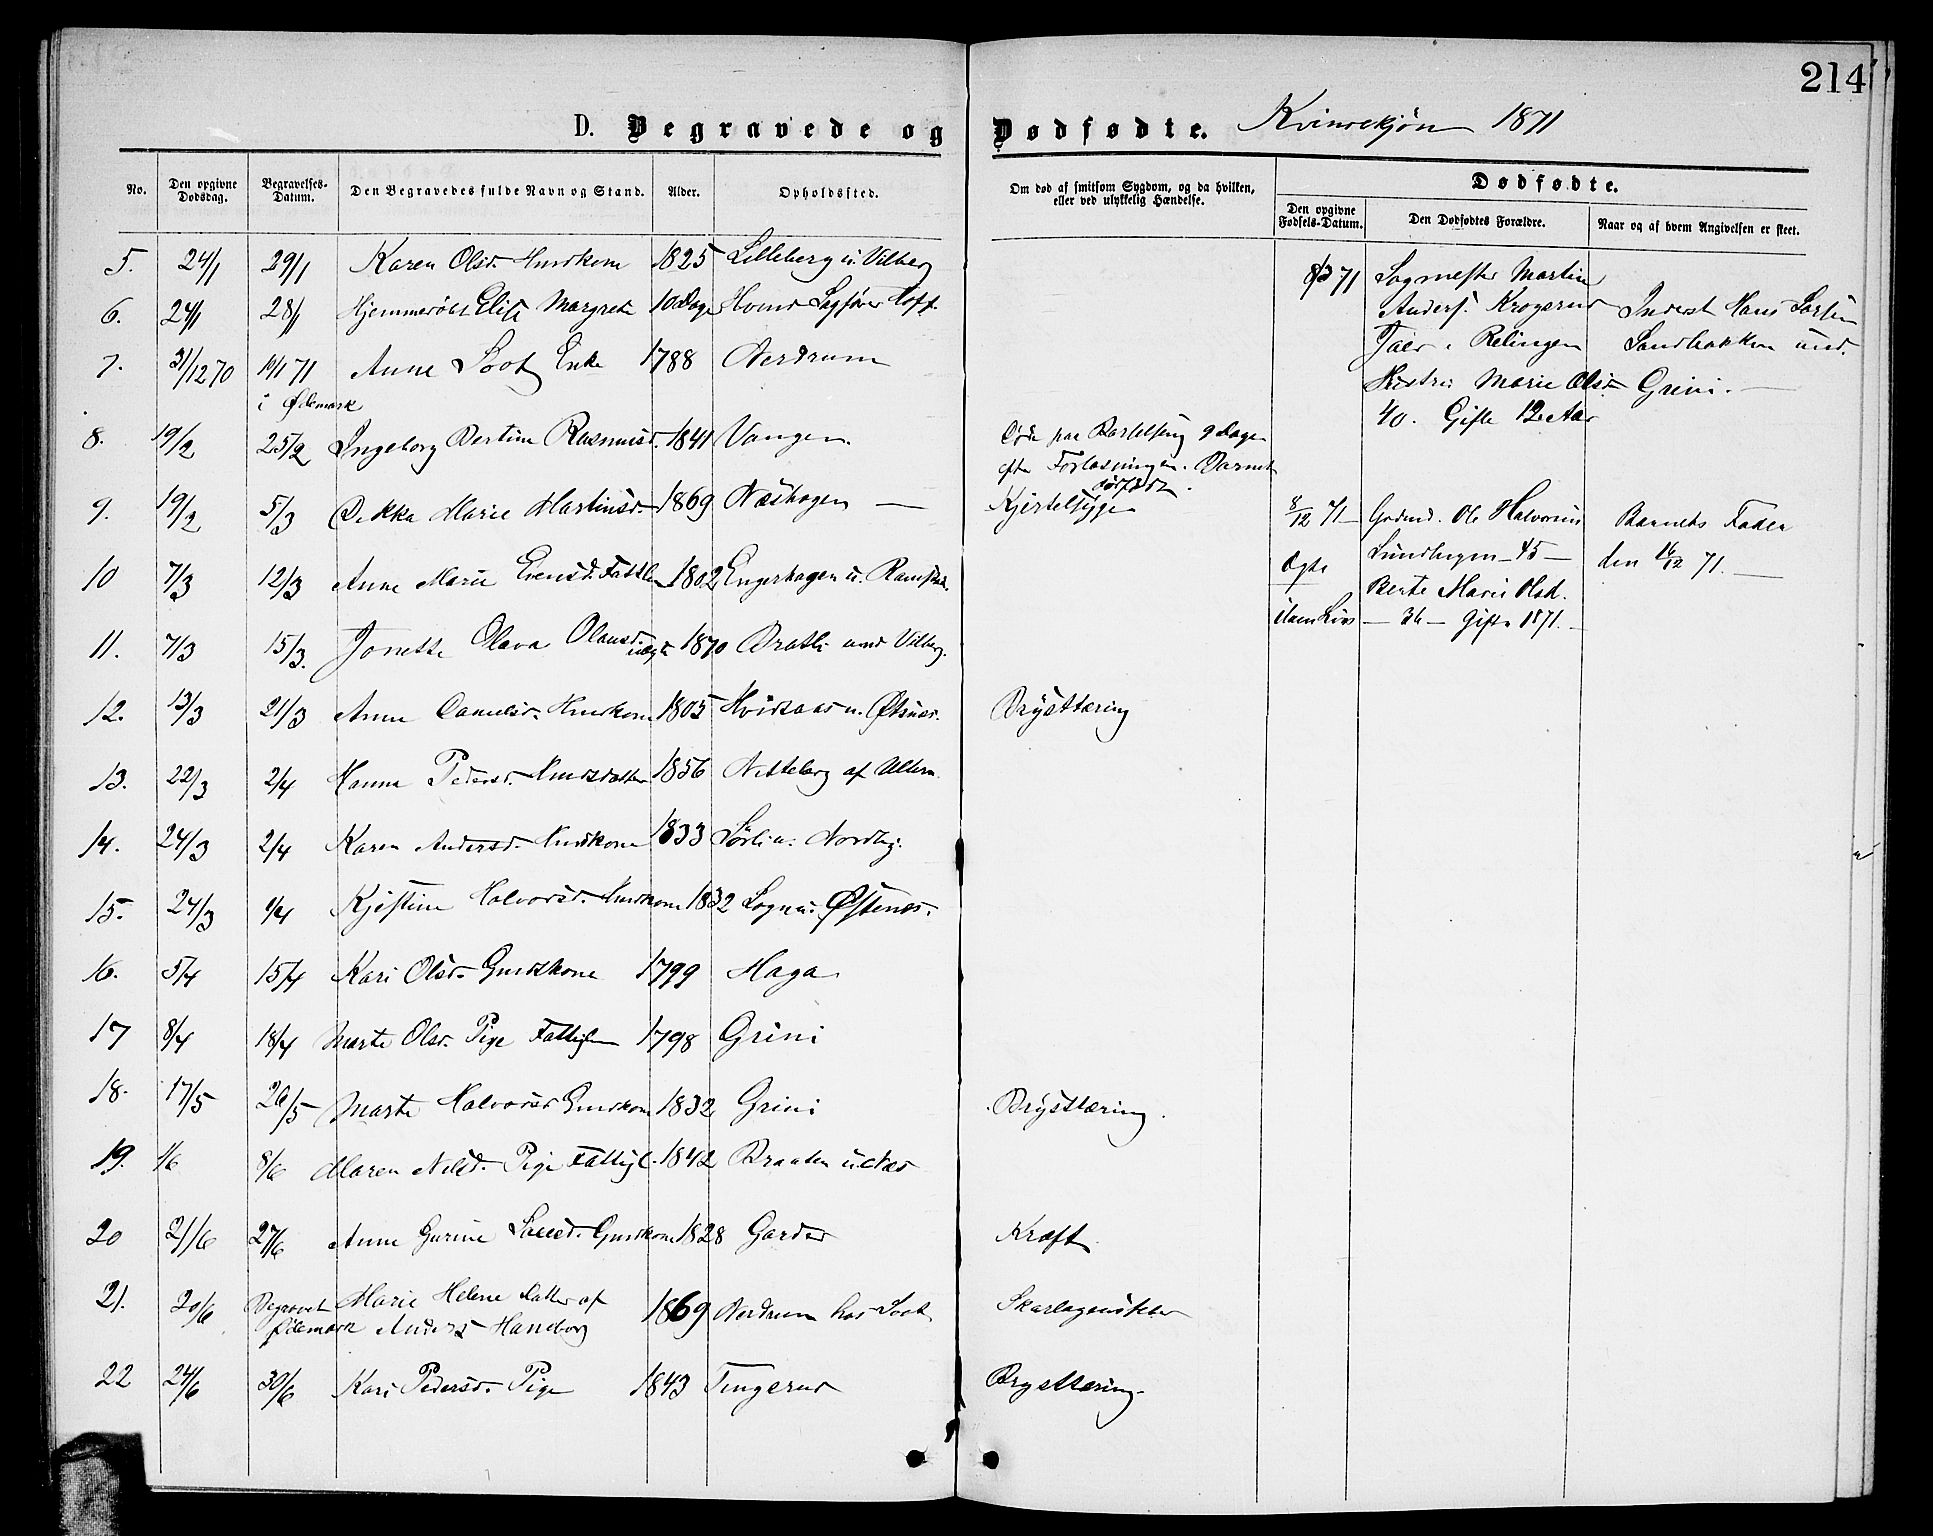 214
D. Begravede og Dødfødte. Kvindekjøn 1871
No.
Den opgivne Dødsdag.
Begravelses-Datum.
Den Begravedes fulde Navn og Stand.
Alder.
Opholdssted.
Om død af smitsom Sygdom, og da hvilken, eller ved ulykkelig Hændelse.
Dødfødte.
Den opgivne Fødsels-Datum.
Den Dødfødtes Forældre.
Naar og af hvem Angivelsen er skeet.
5. 24/1 29/1 Karen Olsd. Huuskone 1825 Lilleberg u. Vilberg
6. 24/1 28/1 Hjemmedøbt Elise Margrete 10 Dage Hvind Sagfører Hoff.
7. 31/12 70 10/1 71 Anne Soot Enke 1788 Nerdrum
i Ødemark
8. 19/2 25/2 Ingeborg Bertine Rasmusd. 1841 Vangen. Døde paa Barselseng 9 Dage
efter Forløsningen. Barnet
dødfødt.
9. 19/2 5/3 Dikka Marie Martinsd. 1869 Næshagen — Kjertelsyge
10 7/3 12/3 Anne Marie Evensd. Fattigl. 1802 Engerhagen u. Ramstad.
11. 7/3 15/3. Jonette Olava Olausd. uægte 1870 Bratli und Vilberg.
12. 13/3 21/3 Anne Danielsd. Huuskone 1805 Hvidsaas u. Østnæs. Brysttæring
13. 22/3 2/4 Hanna Pedersd. Huusdatter 1856 Nitteberg af Ullern
14. 24/3 2/4 Karen Andersd. Huuskone 1833 Sørli u. Nordby.
15. 24/3 1/4 Kjestine Halvorsd. Huuskone 1832 Logn u. Østenæs.
16. 5/4 15/4 Kari Olsd. Gaardkone 1799 Haga
17 8/4 18/4 Marte Olsd. Pige Fattigl. 1798 Grini
18. 17/5 26/5 Marte Halvorsd Gaardkone 1832 Grini Brysttæring.
19. 1/6 8/6 Maren Nilsd. Pige Fattigl. 1842 Braaten u. Næs
20 21/6 27/6 Anne Gurine Gaardkone 1828 Garder Kræft.
21. 20/6 Begravet Marie Helene Datter af
Ødemark Anders Haneborg 1869 Nerdrum hos Soot Skarlagensfeber
22 24/6 30/6 Kari Pedersd. Pige 1843 Tingerud Brysttæring.
8/3 71 Sagmester Martin
Anders. Krogerud
Tæer i Relingen
Marie Olsd.
40. Gifte 12 Aar
Inderst Hans Larsen
Sandbakken und.
Grini. —
8/12 71 — Gaardmd. Ole Halvorsen
Lundhagen — 45 —
Berte Marie Olsd.
— 36 — Gifte 1871. —
Ægte
uden Liv
Barnets Fader
den 16/12 71. —